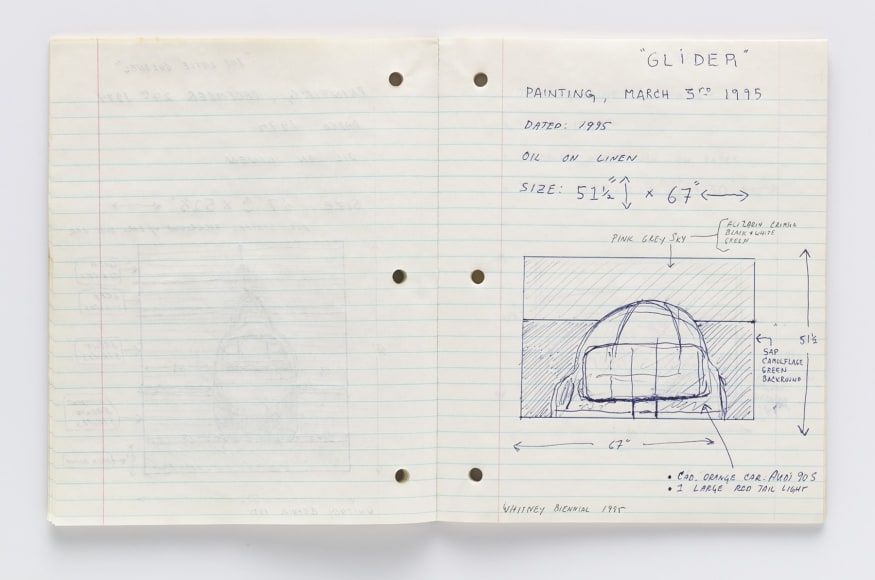 "GLIDER"
PAINTING, MARCH 3RD 1995
DATED: 1995
OIL ON LINEN
SIZE: 51½" × 67"
PINK GREY SKY
ALIZARIN CRIMSON
BLACK & WHITE
GREEN
51½
SAP
CAMULFLAGE
GREEN
BACKROUND
67"
• CAD. ORANGE CAR: AUDI 90S
• 1 LARGE RED TAIL LIGHT
WHITNEY BIENNIAL 1995